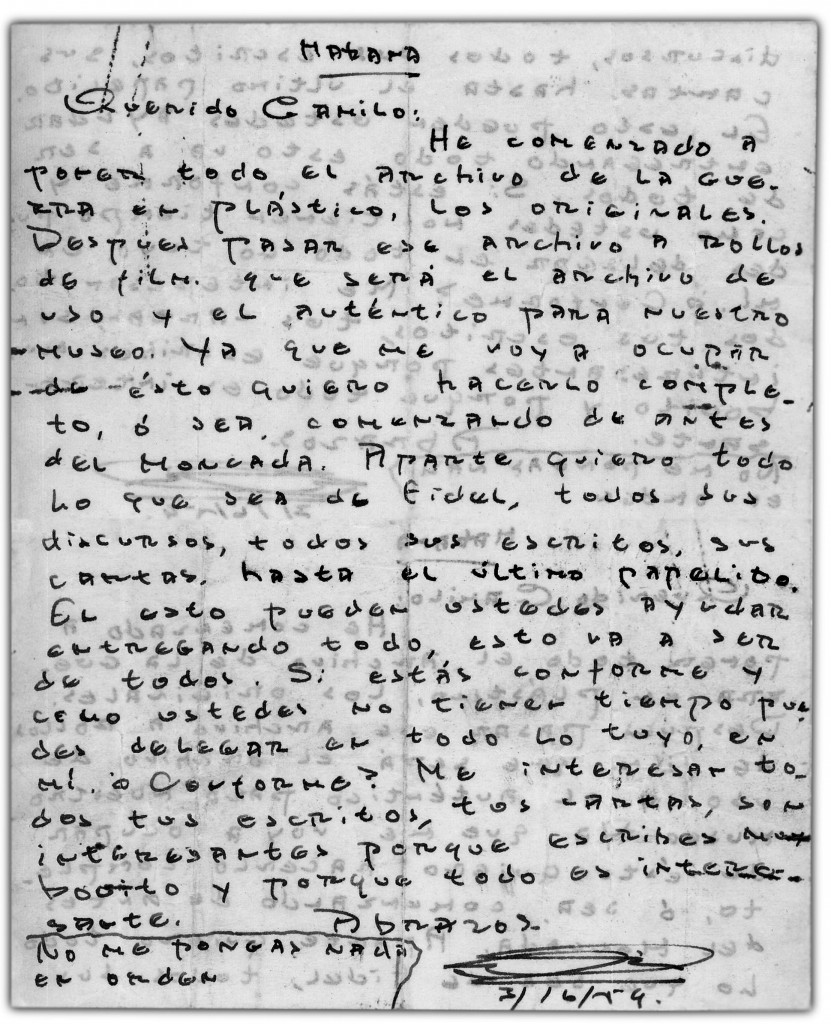 Habana
Querido Camilo:
He comenzado a
poner todo el archivo de la gue-
rra en plástico, los originales.
Despues pasar ese archivo a rollos
de film. que será el archivo de
uso y el auténtico para nuestro
museo. Ya que me voy a ocupar
de ésto quiero hacerlo comple-
to, ó sea, comenzando de antes
del Moncada. Aparte quiero todo
lo que sea de Fidel, todos sus
discursos, todos sus escritos, sus
cartas, hasta el último papelito.
El esto pueden ustedes ayudar
entregando todo, esto va a ser
de todos. Si estás conforme y
como ustedes no tienen tiempo pue
des delegar en todo lo tuyo, en
mí. Conforme? Me interesan to-
dos tus escritos, tus cartas, son
interesantes porque escribes muy
bonito y porque todo es intere-
sante. Abrazos.
No me pongas nada
en orden
3/16/59.